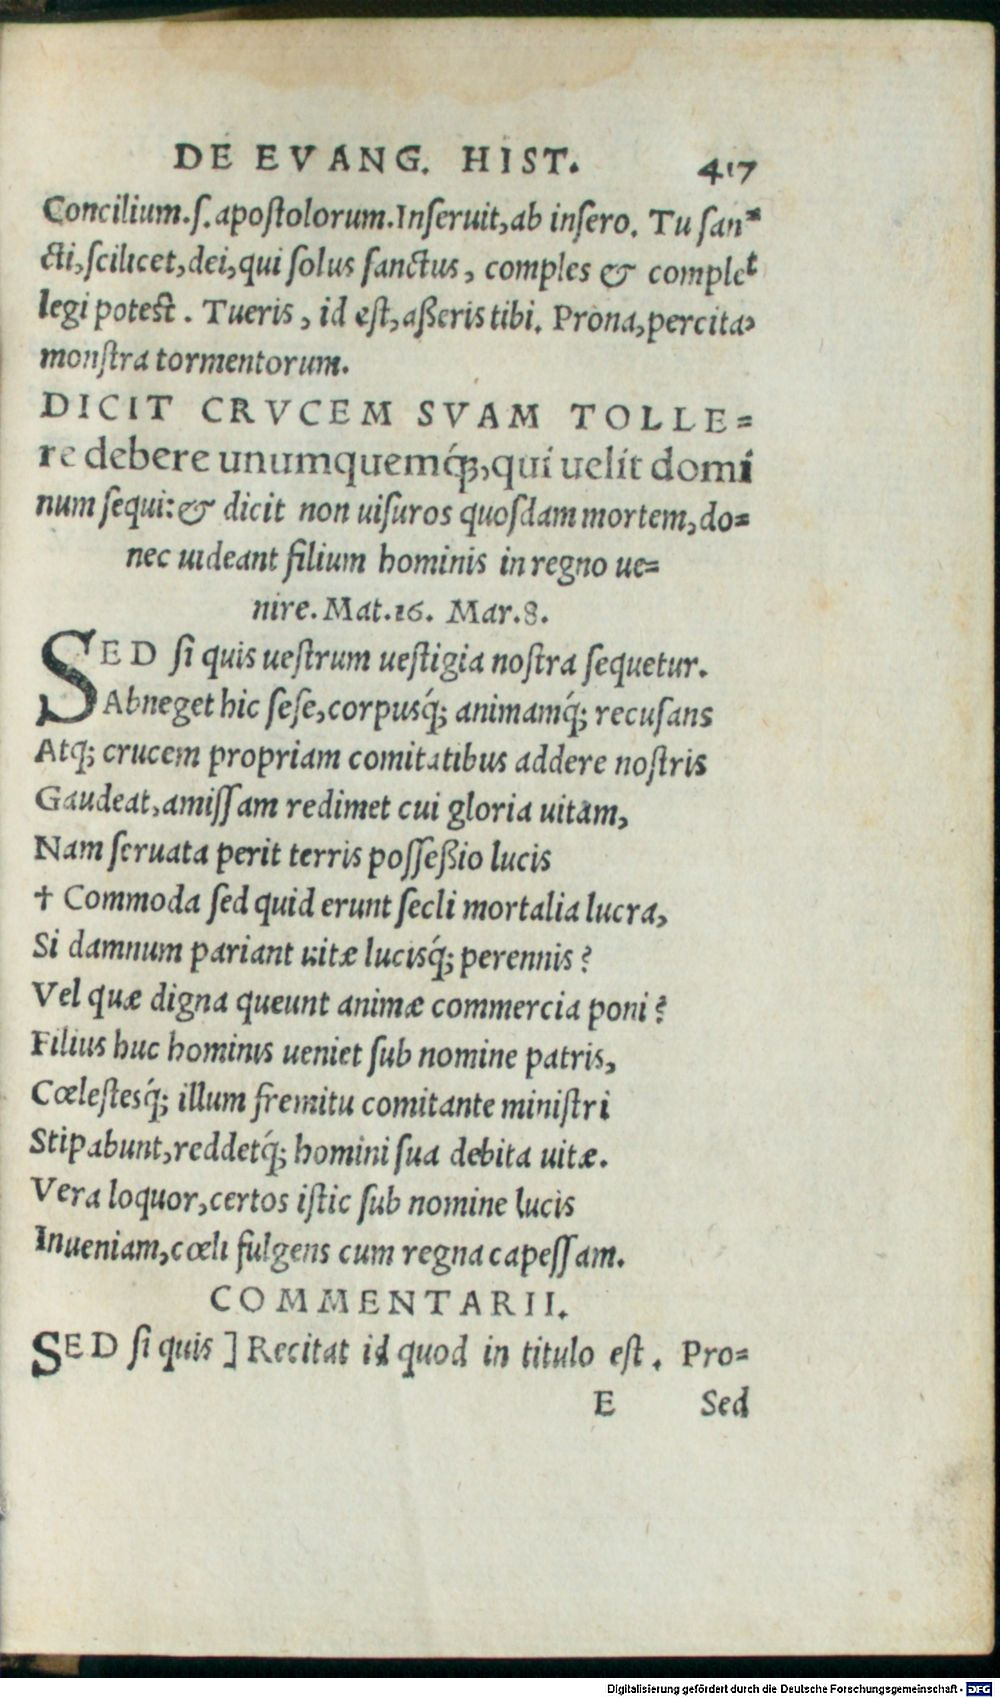 DE EVANG. HIST. 417
Concilium.ſ.apoſtolorum.Inſeruit,ab inſero. Tu ſan=
cti,ſcilicet,dei,qui ſolus ſanctus, comples & complet
legi poteſt. Tueris, id eſt,aßeris tibi. Prona,percita,
monſtra tormentorum.
DICIT CRVCEM SVAM TOLLE=
re debere unumquemq́;,qui uelit domi
num ſequi:& dicit non uiſuros quoſdam mortem,do=
nec uideant filium hominis in regno ue=
nire. Mat.16. Mar.8.
SED ſi quis ueſtrum ueſtigia noſtra ſequetur.
Abneget hic ſeſe,corpusq́; animamq́; recuſans
Atq; crucem propriam comitatibus addere noſtris
Gaudeat,amiſſam redimet cui gloria uitam,
Nam ſeruata perit terris poſſeßio lucis
† Commoda ſed quid erunt ſecli mortalia lucra,
Si damnum pariant uitæ lucisq́; perennis?
Vel quæ digna queunt animæ commercia poni?
Filius huc hominis ueniet ſub nomine patris,
Cœleſtesq́; illum fremitu comitante miniſtri
Stipabunt,reddetq́; homini ſua debita uitæ.
Vera loquor,certos iſtic ſub nomine lucis
Inueniam,cœli fulgens cum regna capeſſam.
COMMENTARII.
SED ſi quis ] Recitat id quod in titulo eſt. Pro=
E Sed
Digitalisierung gefördert durch die Deutsche Forschungsgemeinschaft - DFG